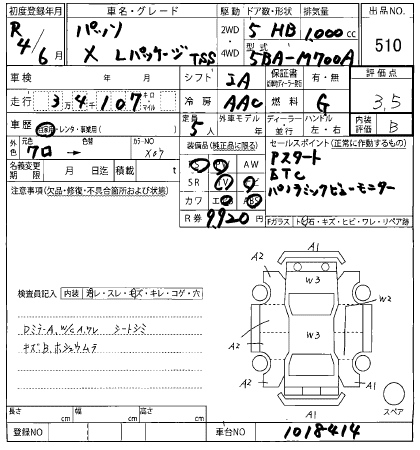 初度登録年月 車名・グレード 駆動 ドア数・形状 排気量 出品NO.
R 4/6月 パッソ 2WD 5 HB 1,000cc 510
X Lパッケージ TSS 4WD 型式 5BA-M700A
車検 年 月 シフト IA 保証書 有・無 評価点
走行 3万4千107 キロ マイル 冷房 AAC 燃料 G 3.5
車歴 自家用・レンタ・事業用( ) 定員 5人 外車モデル 年 ディーラー 並行 ハンドル 左・右 内装評価 B
外色 元色 クロ→ 色替 カラーNO X07
装備品(純正品に限る) セールスポイント(正常に作動するもの)
名義変更期限 月 日迄 積載 t
PS PW AW
SR TV ナビ
カワ エアB ABS
R券 9,920円
Pスタート
ETC
パノラミックビューモニター
注意事項(欠品・修復・不具合箇所および状態)
Fガラス トビ石・キズ・ヒビ・ワレ・リペア跡
検査員記入 内装 汚レ・スレ・キズ・キレ・コゲ・穴
DミラーA, W/Cスレ シートシミ
キズ.B.ホシュウムラ
A1
A2 W3 A2
W2
W3
A2
A2 A1
A1
スペア
長さ cm 幅 cm 高さ cm
登録NO 車台NO 1018414